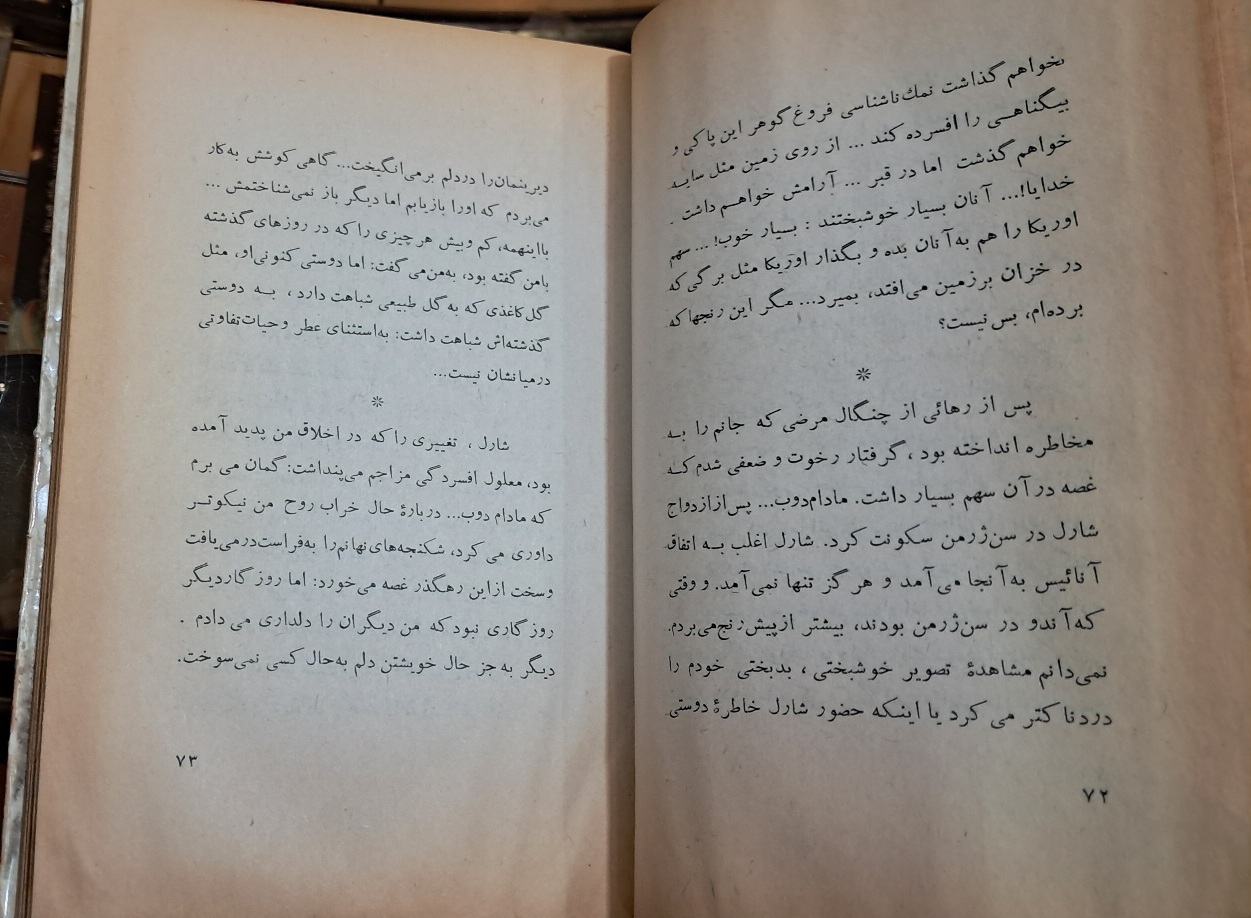 نخواهم گذاشت نمك‌ناشناسی فروغ گوهر این پاکی و
بیگناهـی را افسرده کند ... از روی زمین مثل سایـه
خواهم گذشت اما در قبر ... آرامش خواهـم داشت .
خدایا!... آنان بسیار خوشبختند : بسیار خوب! ... سهم
اوریکا را هم به‌آنان بده و بگذار اوریکا مثل برگی که
در خزان برزمین می‌افتد، بمیرد... مگر این رنجها که
برده‌ام، بس نیست؟
*
پس از رهائی از چنگال مرضی که جانم را بـه
مخاطره انداخته بود ، گرفتار رخوت و ضعفی شدم کـه
غصه در آن سهم بسیار داشت. مادام‌دوب... پس‌ازازدواج
شارل در سن‌ژرمن سکونت کرد. شارل اغلب بـه اتفاق
آنائیس به‌آنجا می‌آمد و هرگز تنها نمی‌آمد. و وقتی
که‌آندو در سن‌ژرمن بودند، بیشتر ازپیش‌رنج‌می‌بردم.
نمی‌دانم مشاهدهٔ تصویر خوشبختی ، بدبختی خودم را
دردناکتر می‌کرد یا اینکه حضور شارل خاطرهٔ دوستی
۷۲
دیرینمان‌را دردلم برمی‌انگیخت... گاهی کوشش به‌کار
می‌بردم که اورا بازیابم اما دیگر باز نمی‌شناختمش ...
بااینهمه، کم وبیش هرچیزی را که در روزهای گذشته
بامن گفته بود، به‌من‌می گفت: اما دوستی کنونی‌او، مثل
گل‌کاغذی که به گل طبیعی شباهت دارد ، بـه دوستی
گذشته‌اش شباهت داشت: به‌استثنای عطر وحیات‌تفاوتی
درمیانشان نیست...
*
شارل ، تغییری را که در اخلاق من پدید آمده
بود، معلول افسردگی مزاجم می‌پنداشت: گمان می برم
که مادام دوب... دربارهٔ حال خراب روح من نیکوتـر
داوری می کرد، شکنجه‌های‌نهانم‌را به‌فراست‌درمی‌یافت
وسخت ازاین رهگذر غصه می‌خورد: اما روز گاردیگر
روزگاری نبود که من دیگران را دلداری می دادم .
دیگر به جز حال خویشتن دلم به‌حال کسی نمی‌سوخت.
۷۳